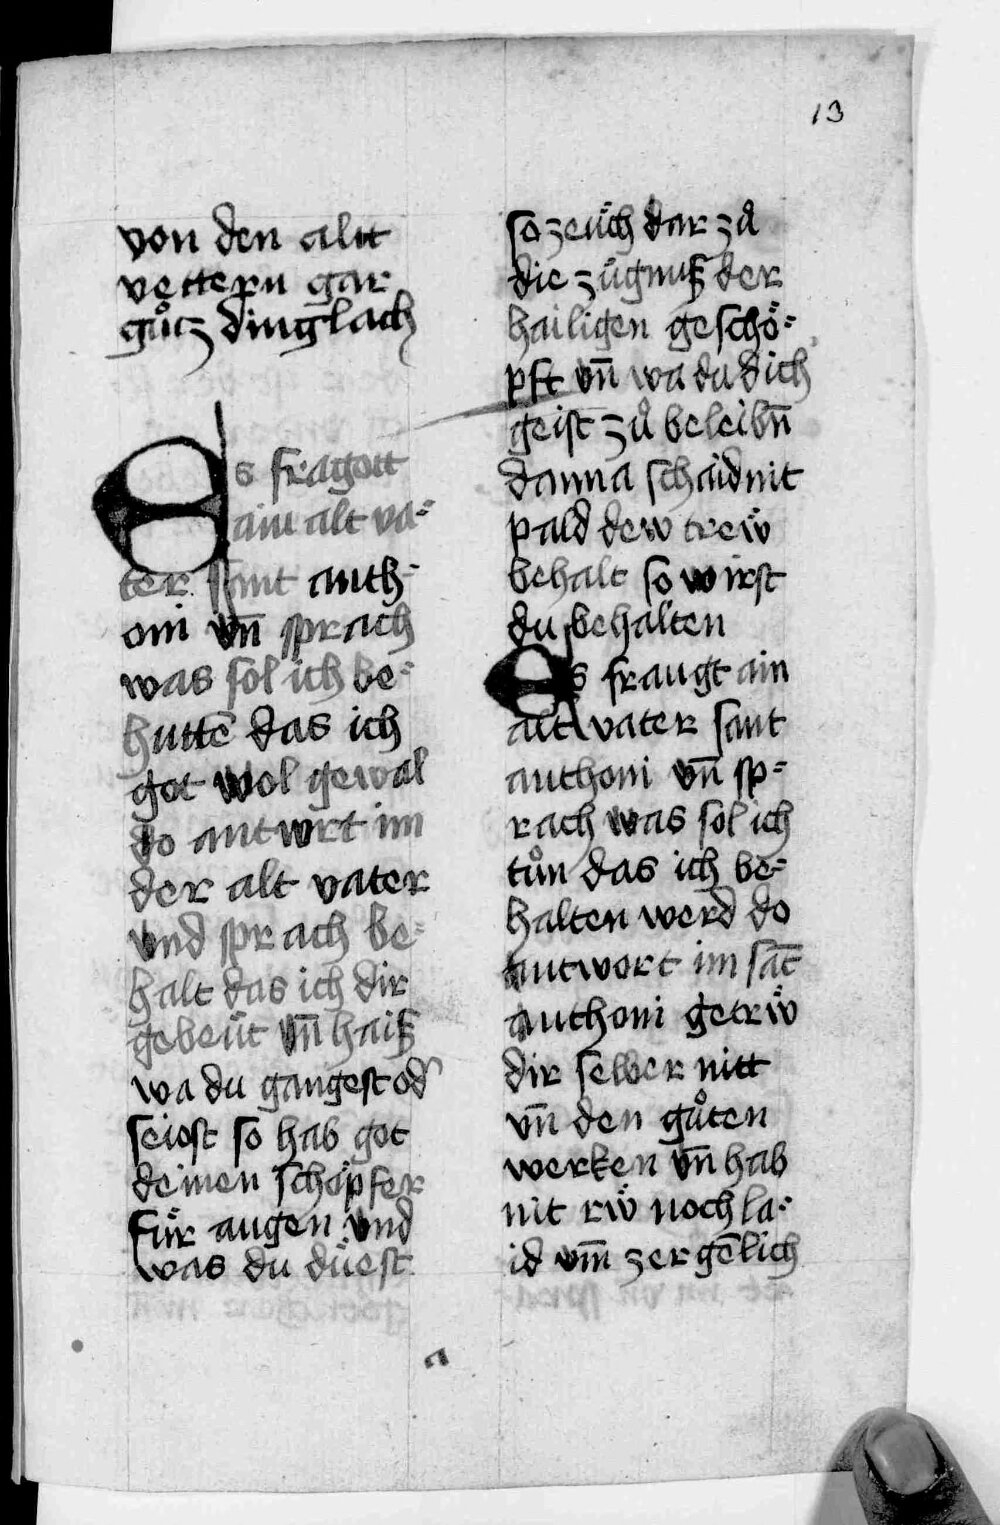 13
von den altt
vettern gar
guͦtz dinglach
Es fragott
ain alt va-
ter sant anth-
oni vn̄ sprach
was sol ich be-
huttē das ich
got wol geval
do antwrt im
der alt vater
vnd sprach be-
halt das ich dir
gebeüt vn̄ haiß
wa du gangest od
seiest so hab got
deinen schöpfer
für augen vnd
was du düest
so zeüch dar zuͦ
die zügnuß der
hailigen geschö-
pft vn̄ wa du dich
geist zuͦ beleibn̄
danna schaid nit
pald dew trew̎
behalt so wirst
du behalten
Es fraugt ain
alt vater sant
anthoni vn̄ sp-
rach was sol ich
tuͦn das ich be-
halten werd do
antwort im sāt
anthoni getrw̎
dir selber nitt
vn̄ den guͦten
werken vn̄ hab
nit rw̎ noch la-
id vm̄ zergēlich
a